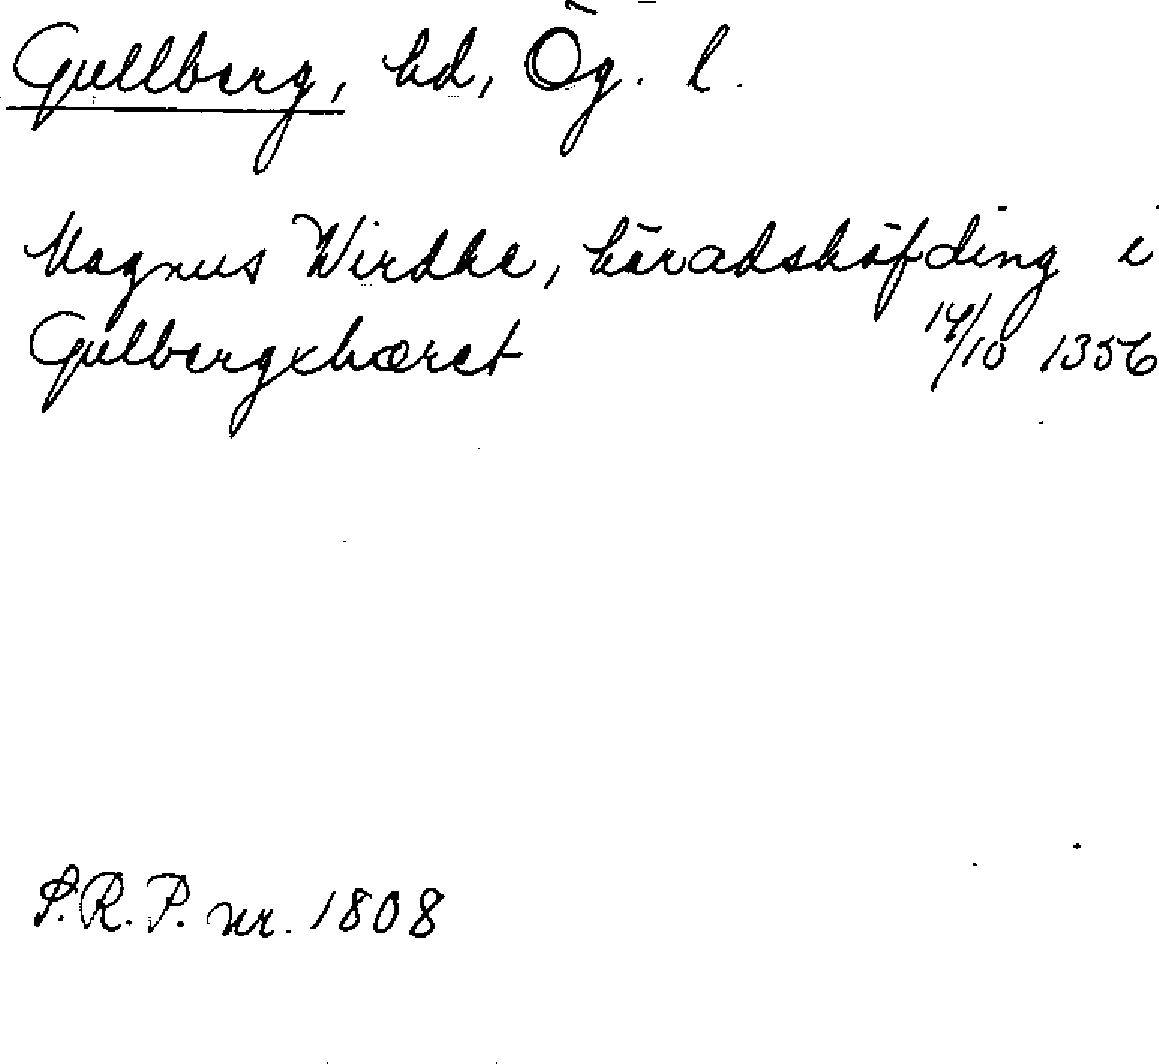 Gullberg, hd, Ög. l.
Magnus Wirdhe, häradshöfding i
Gulbergxhæret 14/10 1356
S.R.P. nr. 1808